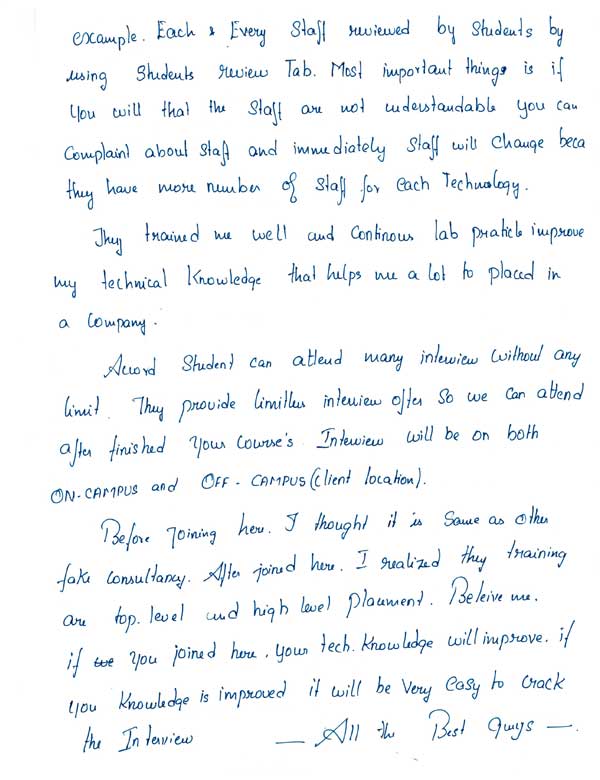 example. Each & Every Staff reviewed by Students by
using Students review Tab. Most important things is if
You will that the Staff are not understandable you can
Complaint about Staff and immediately Staff will Change beca
they have more number of Staff for each Technology.
They trained me well and Continous lab praticle improve
my technical Knowledge that helps me a lot to placed in
a Company.
Accord Student can attend many interview without any
limit. They provide limitless interview offer So we can attend
after finished your Course's Interview will be on both
ON-CAMPUS and OFF-CAMPUS (Client location).
Before Joining here. I thought it is Same as other
fake Consultancy. After joined here. I realized they training
are top. level and high level placement. Beleive me.
if you joined here, your tech. Knowledge will improve. if
you Knowledge is improved it will be very easy to crack
the Interview — All the Best guys —.